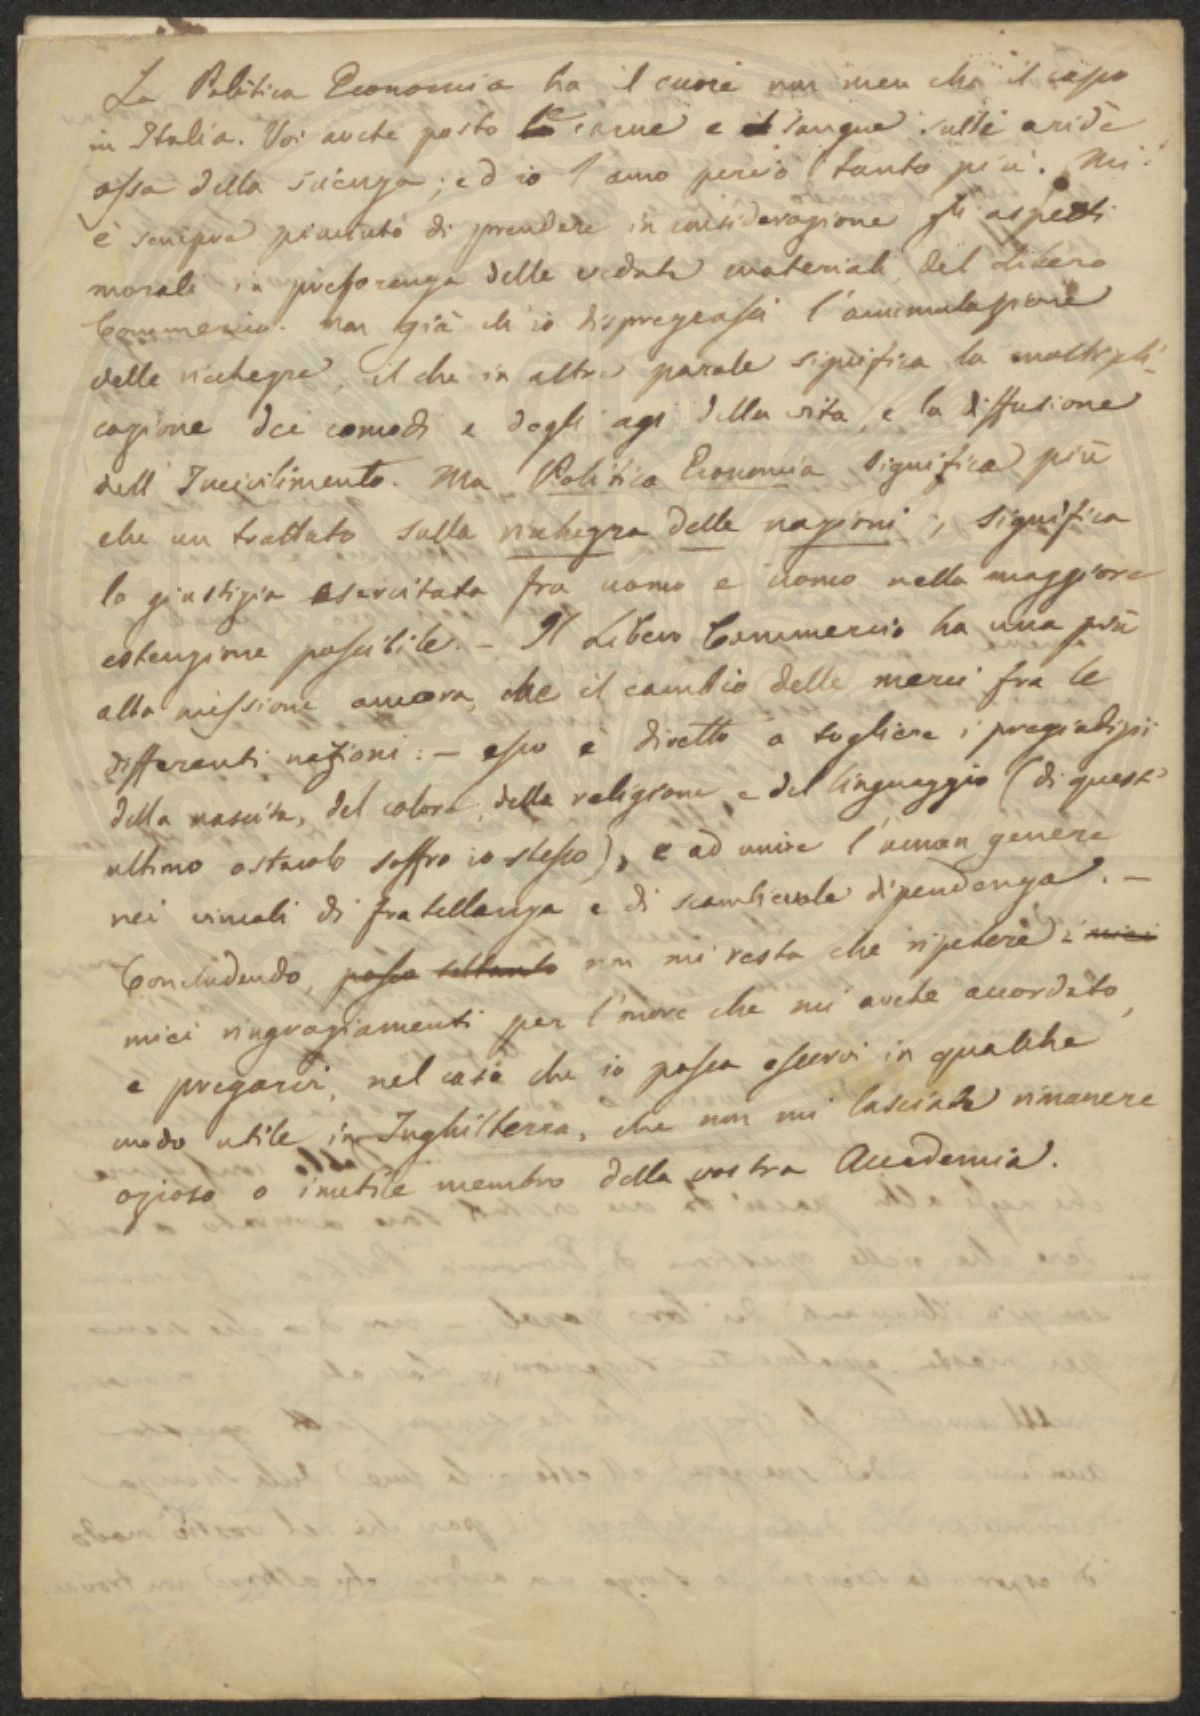 La Politica Economia ha il cuore non men che il capo
in Italia. Voi avete posto le carne e il sangue sulle aride
ossa della scienza; ed io l'amo perciò tanto più. Mi
è sempre piaciuto di prendere in considerazione gli aspetti
morali in preferenza delle vedute materiali del Libero
Commercio. non già ch'io disprezzassi l'accumulazione
delle richezze, il che in altre parole significa la moltipli-
cazione dei comodi e degli agi della vita, e la diffusione
dell'Incivilimento. Ma Politica Economia significa più
che un trattato sulla richezza delle nazioni; significa
la giustizia esercitata fra uomo e uomo nella maggiore
estenzione possibile. – Il Libero Commercio ha una più
alta missione ancora, che il cambio delle merci fra le
differenti nazioni: – esso è diretto a togliere i pregiudizii
della nascita, del colore, della religione e del linguaggio (di quest'
ultimo ostacolo soffro io stesso), e ad unire l'uman genere
nei vincoli di fratellanza e di scambievole dipendenza. –
Concludendo, posso soltanto non mi resta che ripetere i miei
miei ringraziamenti per l'onore che mi avete accordato,
e pregarvi, nel caso che io possa esservi in qualche
modo utile in Inghilterra, che non mi lasciate rimanere
ozioso o inutile membro della vostra Accademia.